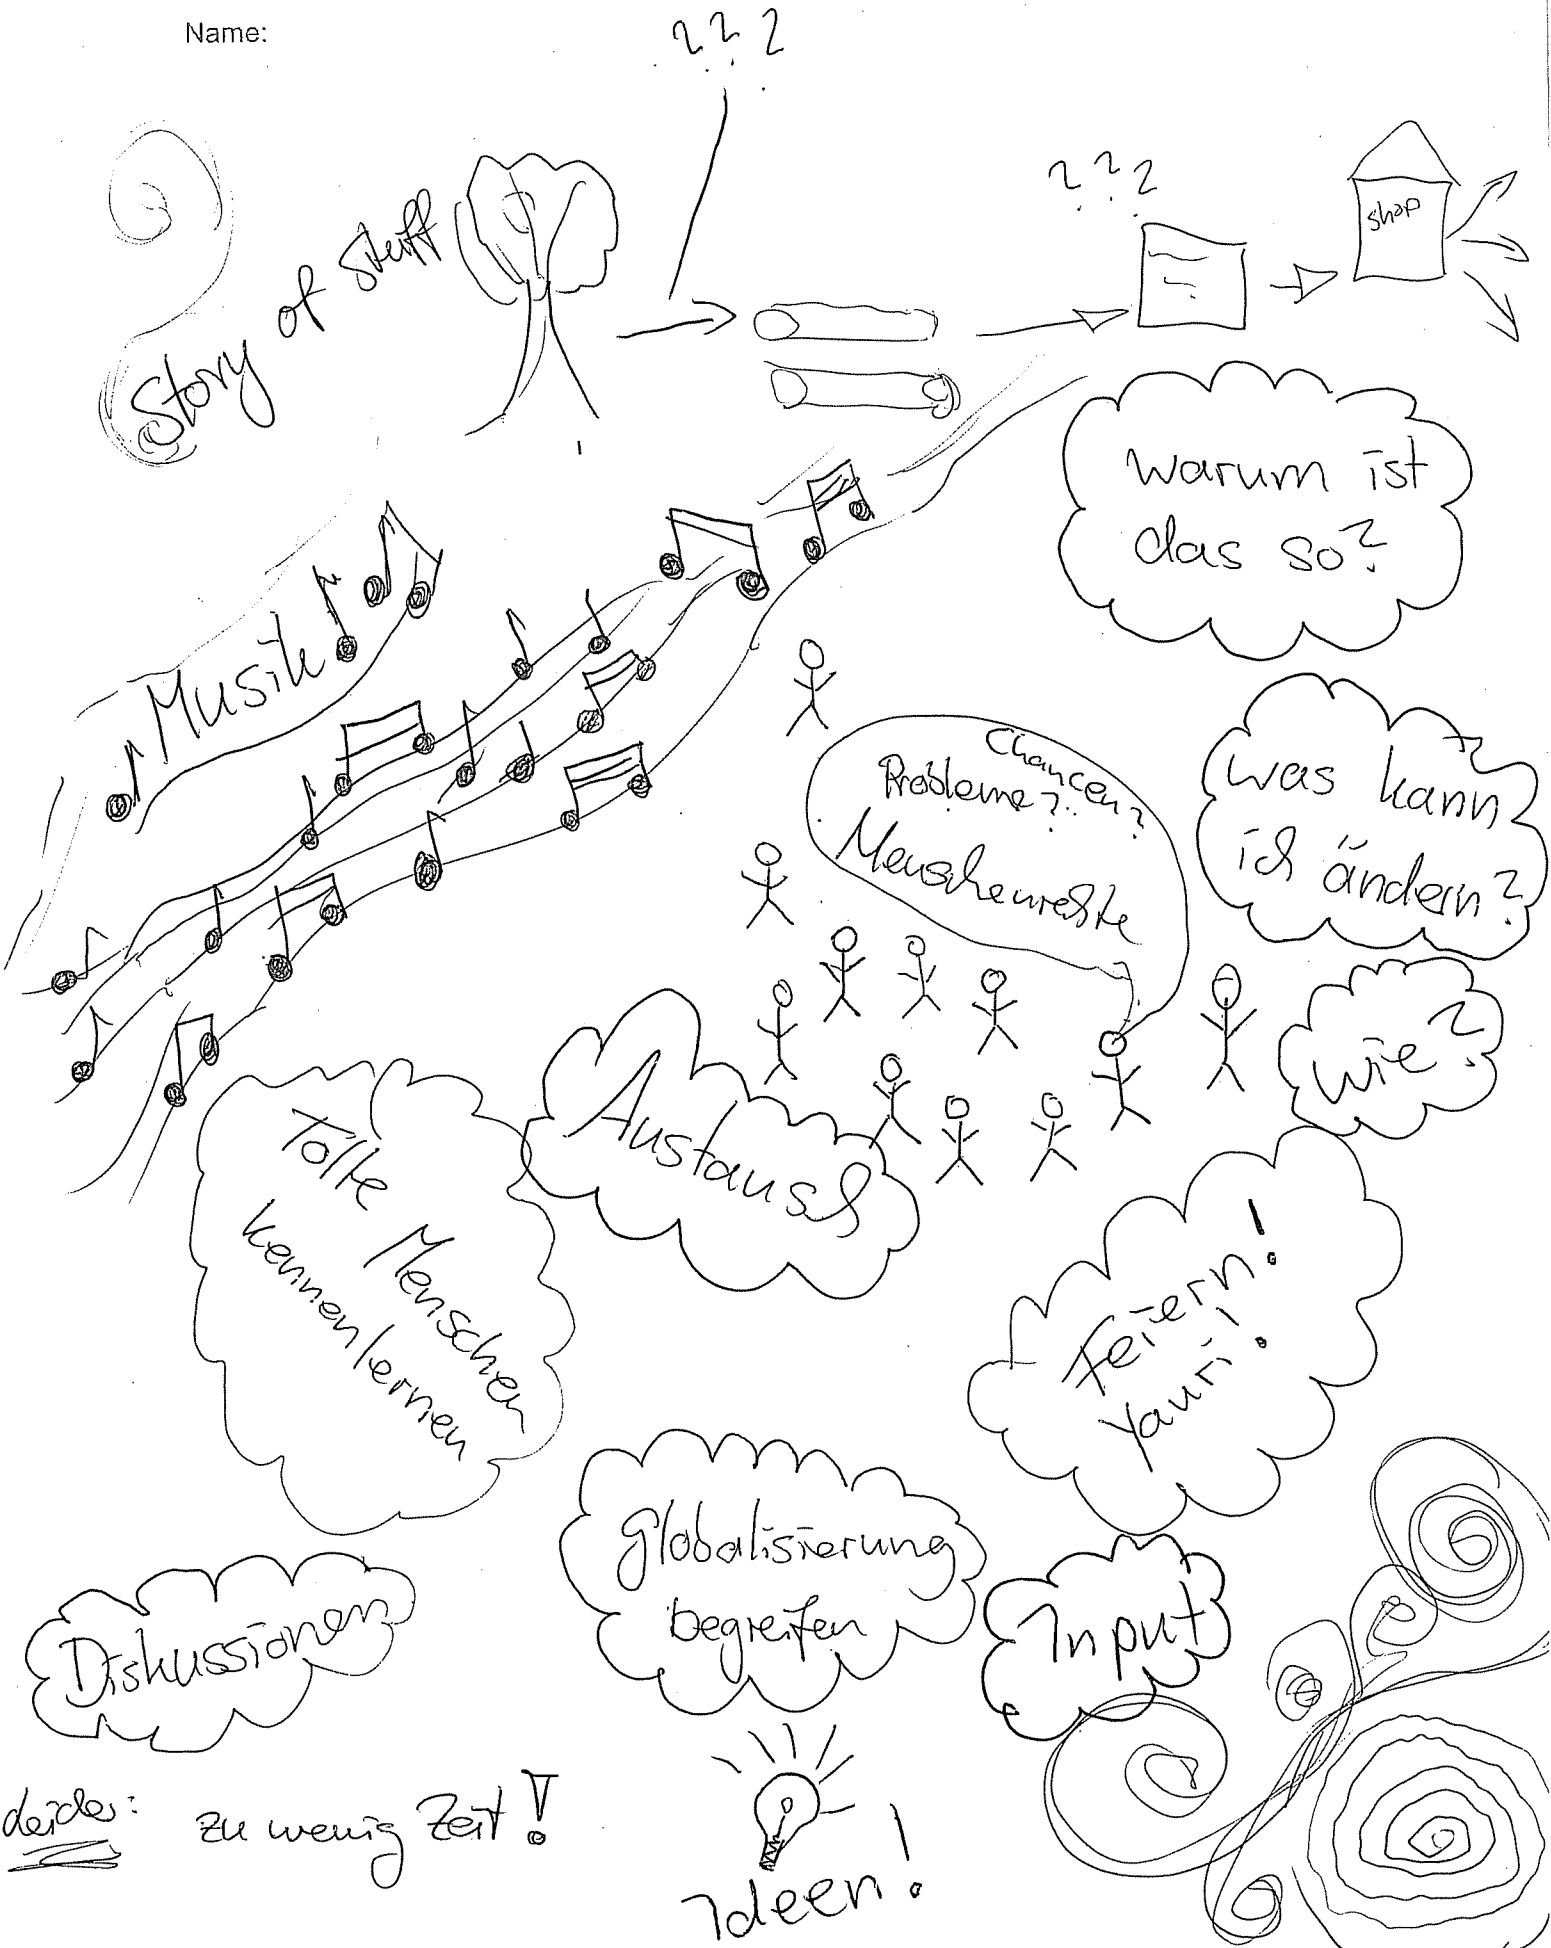 Name:
? ? ?
? ? ?
shop
Story of stuff
warum ist
das so?
Musik
Chancen?
Probleme?
Menschenrechte
was kann
ich ändern?
wie?
Austausch
Tolle Menschen
kennenlernen
Feiern!
Yauri!
Globalisierung
begreifen
Input
Diskussionen
Leider: zu wenig Zeit!
Ideen!